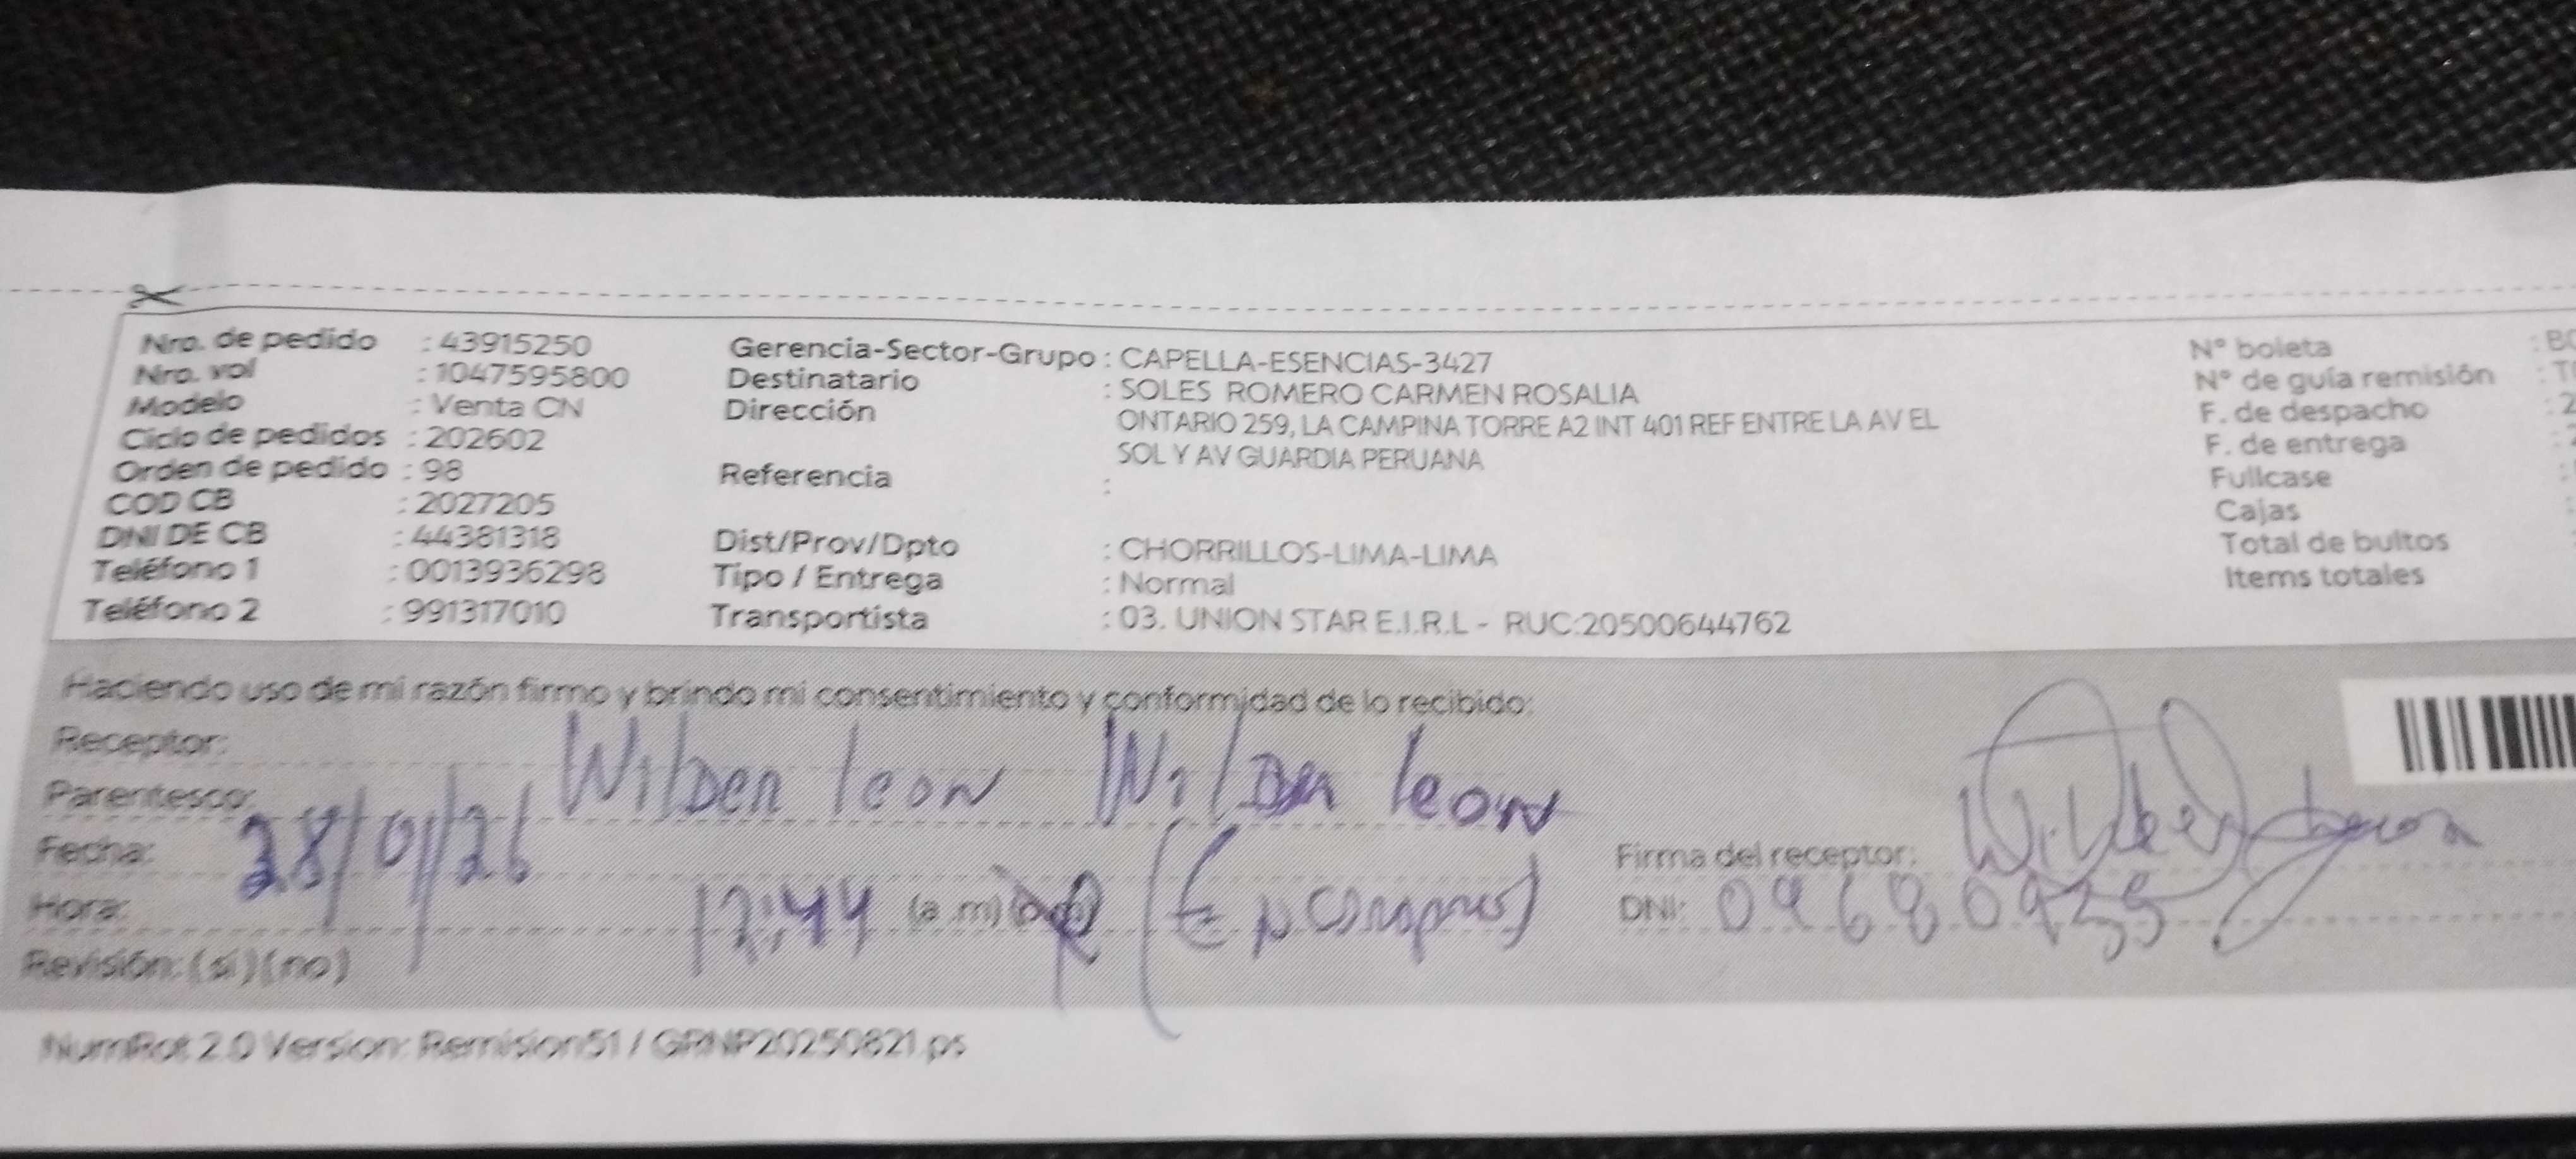 Nro. de pedido : 43915250
Nro. vol : 1047595800
Modelo : Venta CN
Ciclo de pedidos : 202602
Orden de pedido : 98
COD CB : 2027205
DNI DE CB : 44381318
Teléfono 1 : 0013936298
Teléfono 2 : 991317010
Gerencia-Sector-Grupo : CAPELLA-ESENCIAS-3427
Destinatario : SOLES ROMERO CARMEN ROSALIA
Dirección ONTARIO 259, LA CAMPINA TORRE A2 INT 401 REF ENTRE LA AV EL
SOL Y AV GUARDIA PERUANA
Referencia :
Dist/Prov/Dpto : CHORRILLOS-LIMA-LIMA
Tipo / Entrega : Normal
Transportista : 03. UNION STAR E.I.R.L - RUC:20500644762
N° boleta
N° de guía remisión
F. de despacho
F. de entrega
Fullcase
Cajas
Total de bultos
Items totales
Haciendo uso de mi razón firmo y brindo mi consentimiento y conformidad de lo recibido:
Receptor:
Parentesco: Wilber leon Wilber leon
Fecha: 28/01/26
Hora: 12:44 (a.m)
Revisión: (si) (no)
Firma del receptor:
DNI:
NumRot 2.0 Version: Remision51 / GRNP20250821.ps